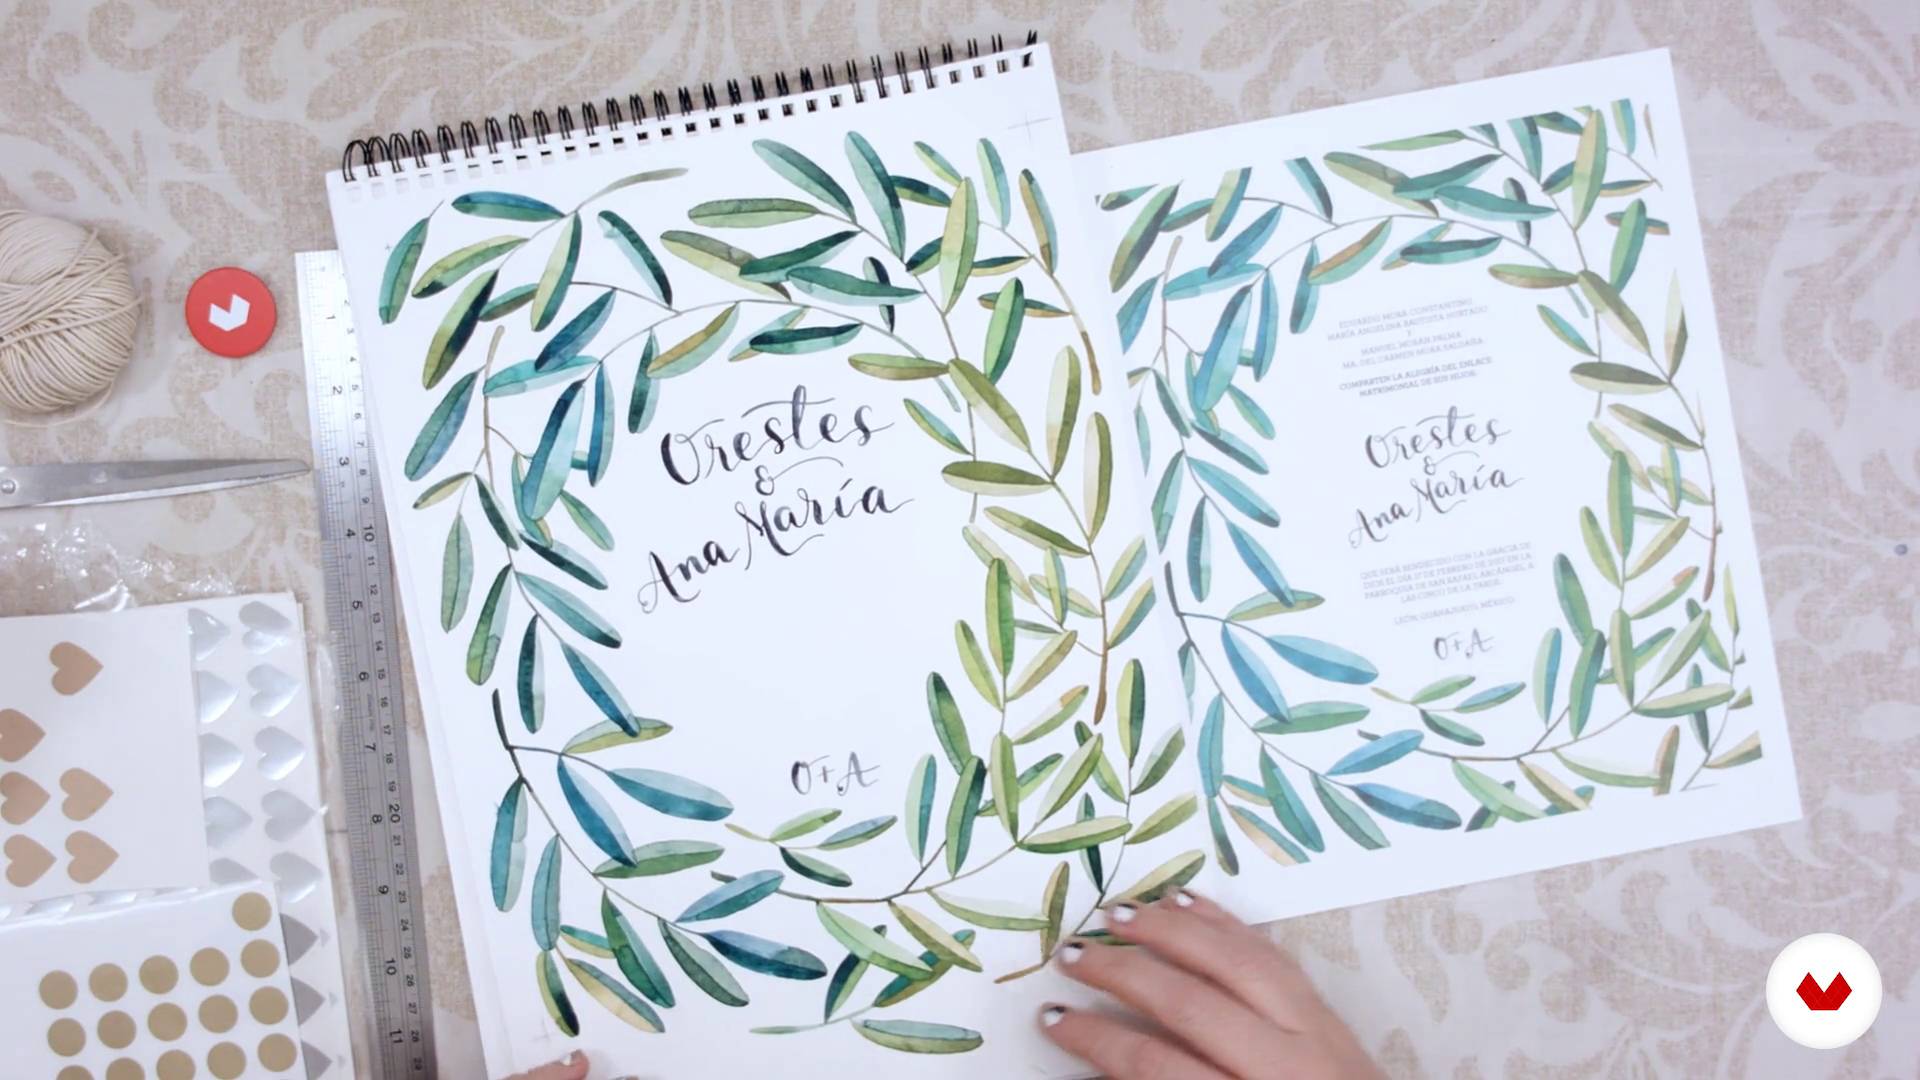 Orestes
&
Ana María
O+A
EDUARDO MORA CONSTANTINO
MARÍA ANGELINA BAUTISTA HURTADO
Y
MANUEL MORÁN PALMA
MA. DEL CARMEN MORA SALDAÑA
COMPARTEN LA ALEGRÍA DEL ENLACE
MATRIMONIAL DE SUS HIJOS:
Orestes
&
Ana María
QUE SERÁ BENDECIDO CON LA GRACIA DE
DIOS EL DÍA DE FEBRERO DE EN LA
PARROQUIA DE SAN RAFAEL ARCÁNGEL, A
LAS CINCO DE LA TARDE.
LEÓN, GUANAJUATO, MÉXICO.
O+A
1
2
3
4
5
6
7
8
9
10
11